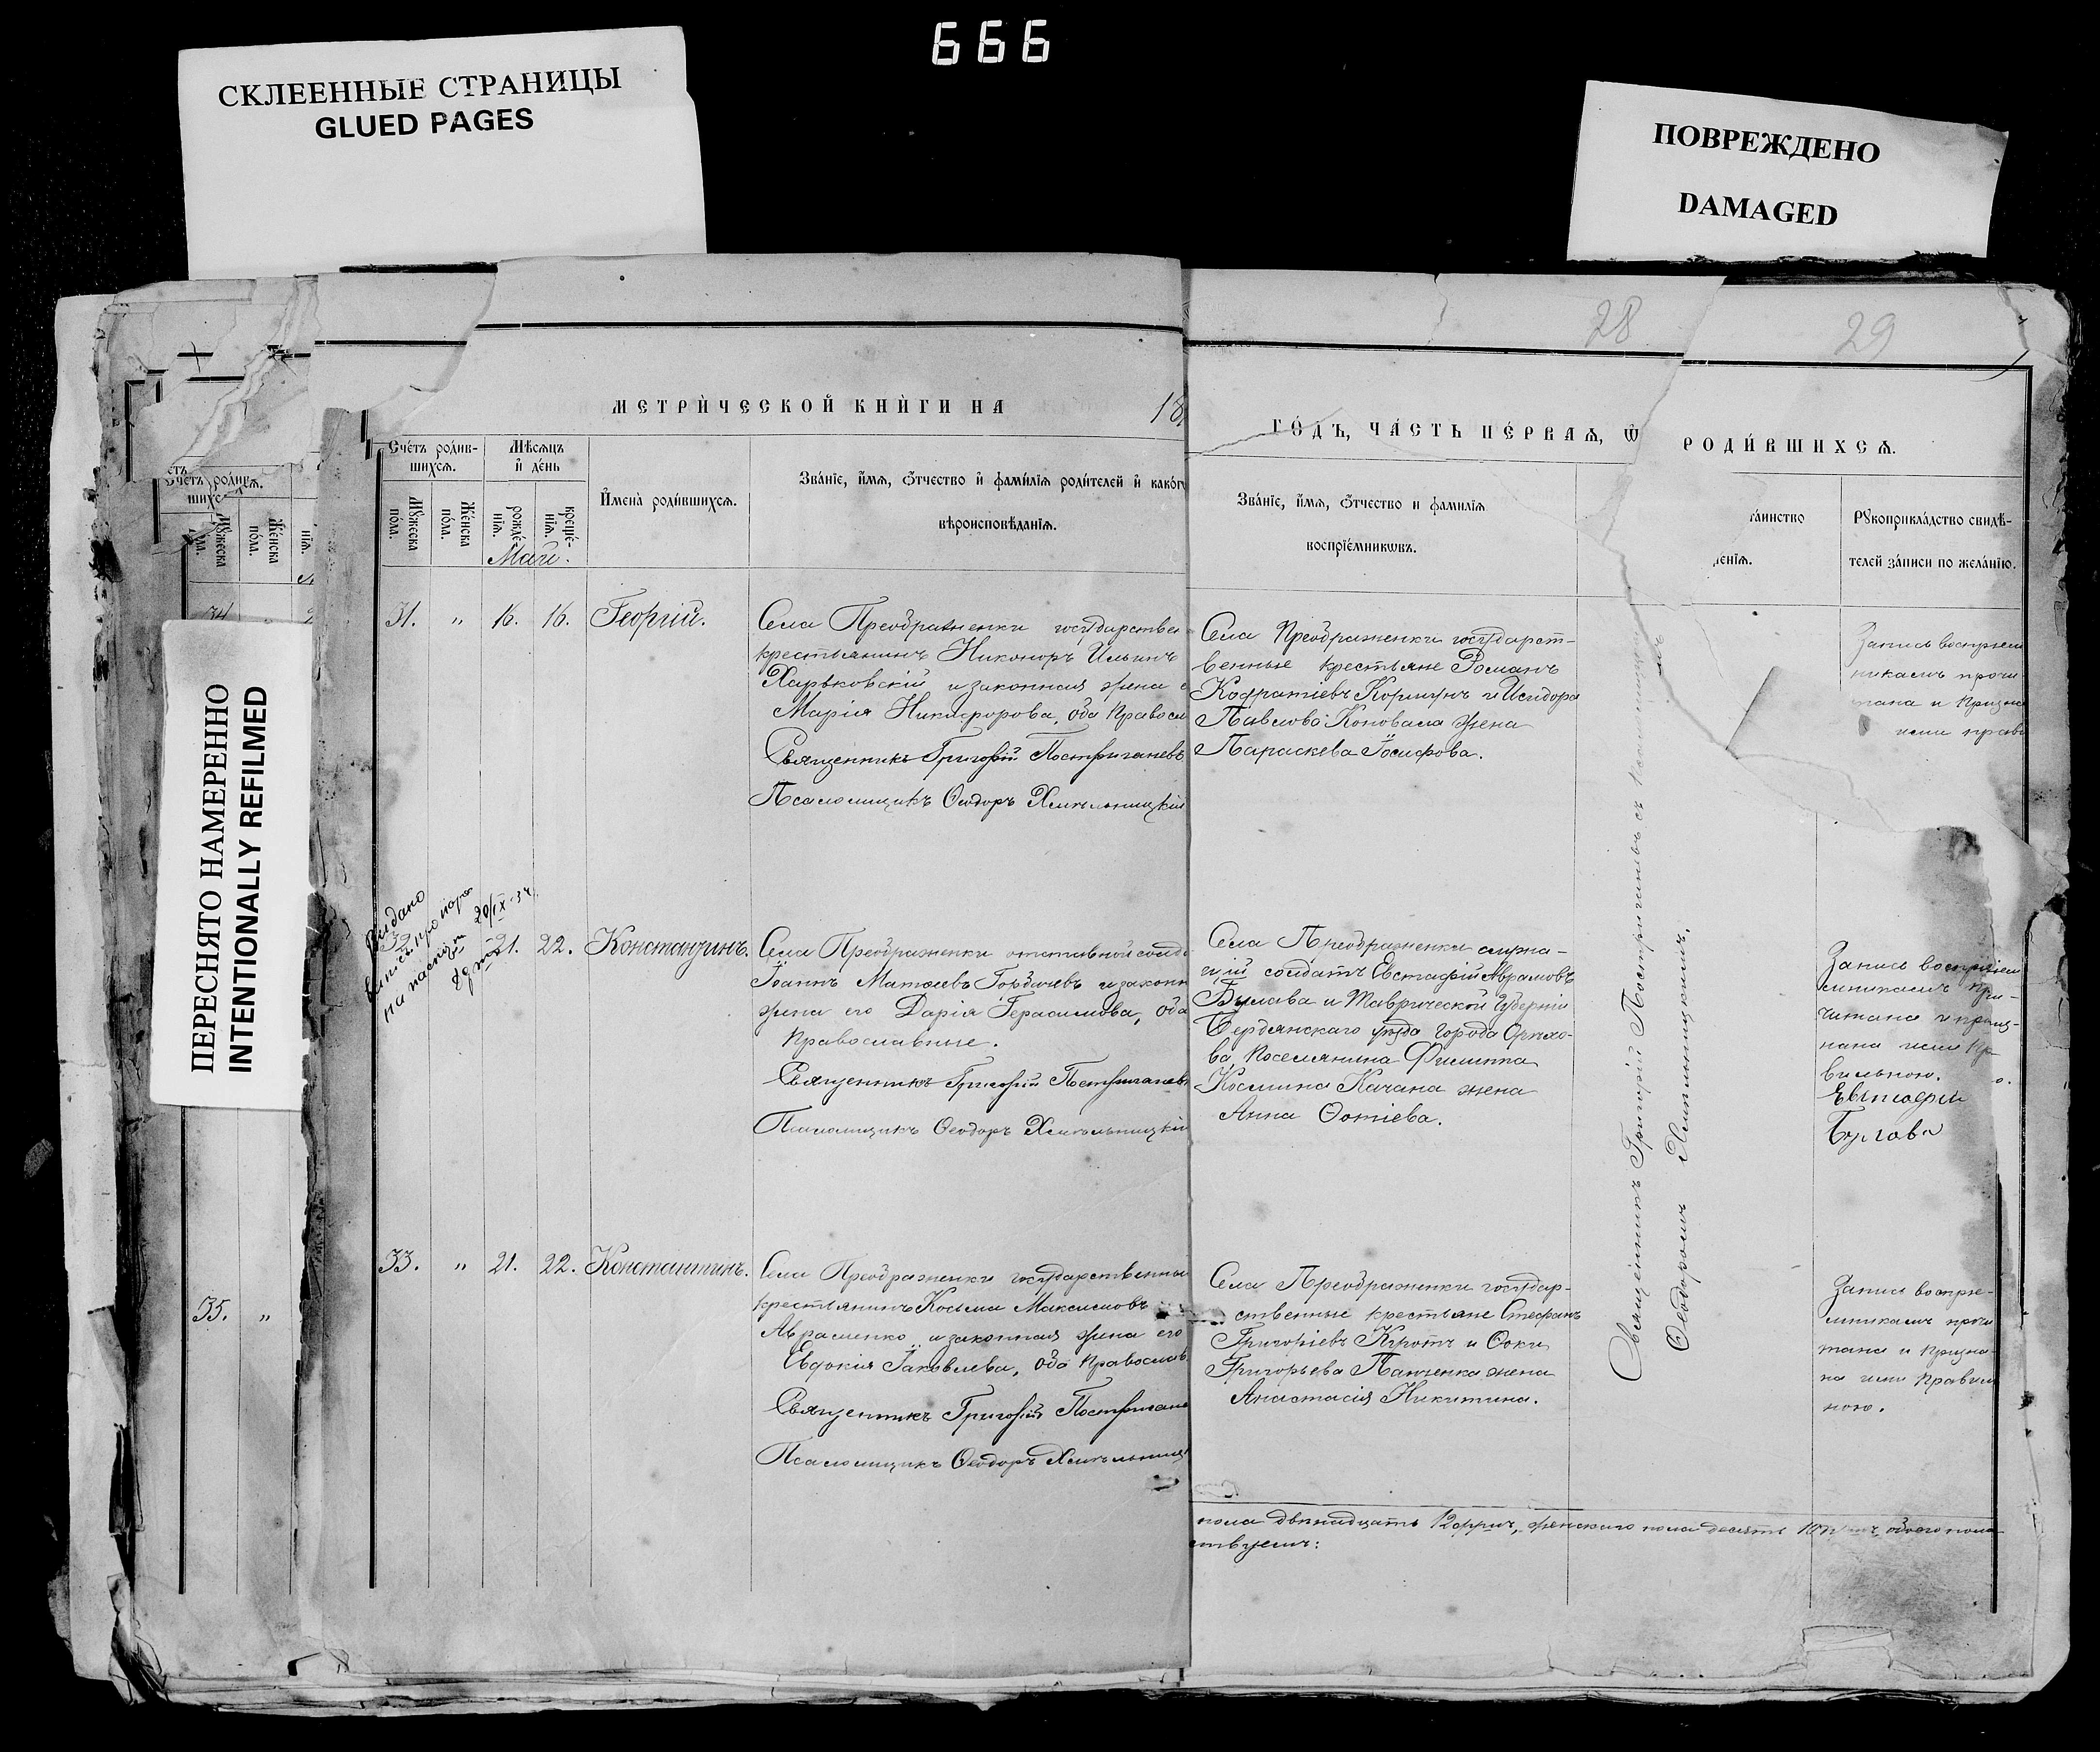 666
СКЛЕЕННЫЕ СТРАНИЦЫ
GLUED PAGES
ПОВРЕЖДЕНО
DAMAGED
ПЕРЕСНЯТО НАМЕРЕННО
INTENTIONALLY REFILMED
28
29
МЕТРИЧЕСКОЙ КНИГИ НА
18
ГОДЪ, ЧАСТЬ ПЕРВАЯ, Ѿ РОДИВШИХСЯ.
Счетъ родив-
шихся.
Мѣсяцъ
и день
Мужеска
пола.
Женска
пола.
рожде
нія.
креще-
нія.
Имена родившихся.
Званіе, имя, отчество и фамилія родителей и како
вѣроисповѣданія.
Званіе, имя, отчество и фамилія
воспріемниковъ.
Рукоприкладство свидѣ-
телей записи по желанію.
Май.
31. " 16. 16. Георгій.
Села Преображенки государствен
крестьянинъ Никоноръ Ильинъ
Харьковскій и законная жена
Марія Никифорова, оба правосл
Священникъ Григорій Постригачевъ
Псаломщикъ Ѳеодоръ Хмѣльницкій
Села Преображенки государст-
венные крестьяне Романъ
Кодратіевъ Коршунъ и Исидора
Павлова Коновала жена
Параскева Іосифова.
Запись воспріем
никамъ прочи
тана и призна
ими прави
Выдано
20/IX-34
32. 21. 22. Константинъ.
Села Преображенки отставной солд
Іоаннъ Матѳеевъ Горбачевъ и законн
жена его Дарія Герасимова, оба
Православные.
Священникъ Григорій Постригачевъ
Псаломщикъ Ѳеодоръ Хмѣльницкій
Села Преображенки служа-
щій солдатъ Евстафій Аврамовъ
Булава и Таврической Губерніи
Бердянскаго уѣзда города Орѣхо-
ва поселянина Филиппа
Космина Качана жена
Анна Ѳотіева.
Запись воспріем
никамъ про-
читана и приз-
нана ими пра
вильною.
Евстафій
Булава
33. " 21. 22. Константинъ.
Села Преображенки государственны
крестьянинъ Косьма Максимовъ
Авраменко и законная жена его
Евдокія Іаковлева, оба православ
Священникъ Григорій Постригаче
Псаломщикъ Ѳеодоръ Хмѣльниц
Села Преображенки государ-
ственные крестьяне Стефанъ
Григоріевъ Кротъ и Ѳоки
Григорьева Панченка жена
Анастасія Никитина.
Запись воспріе-
мникамъ прочи
тана и призна-
на ими правил
ною.
Священникъ Григорій Постригачевъ съ Псаломщикомъ
Ѳеодоромъ Хмѣльницкимъ.
35. "
пола двѣнадцать 12 женскаго пола десять 10 обоего пола
ствуемъ: